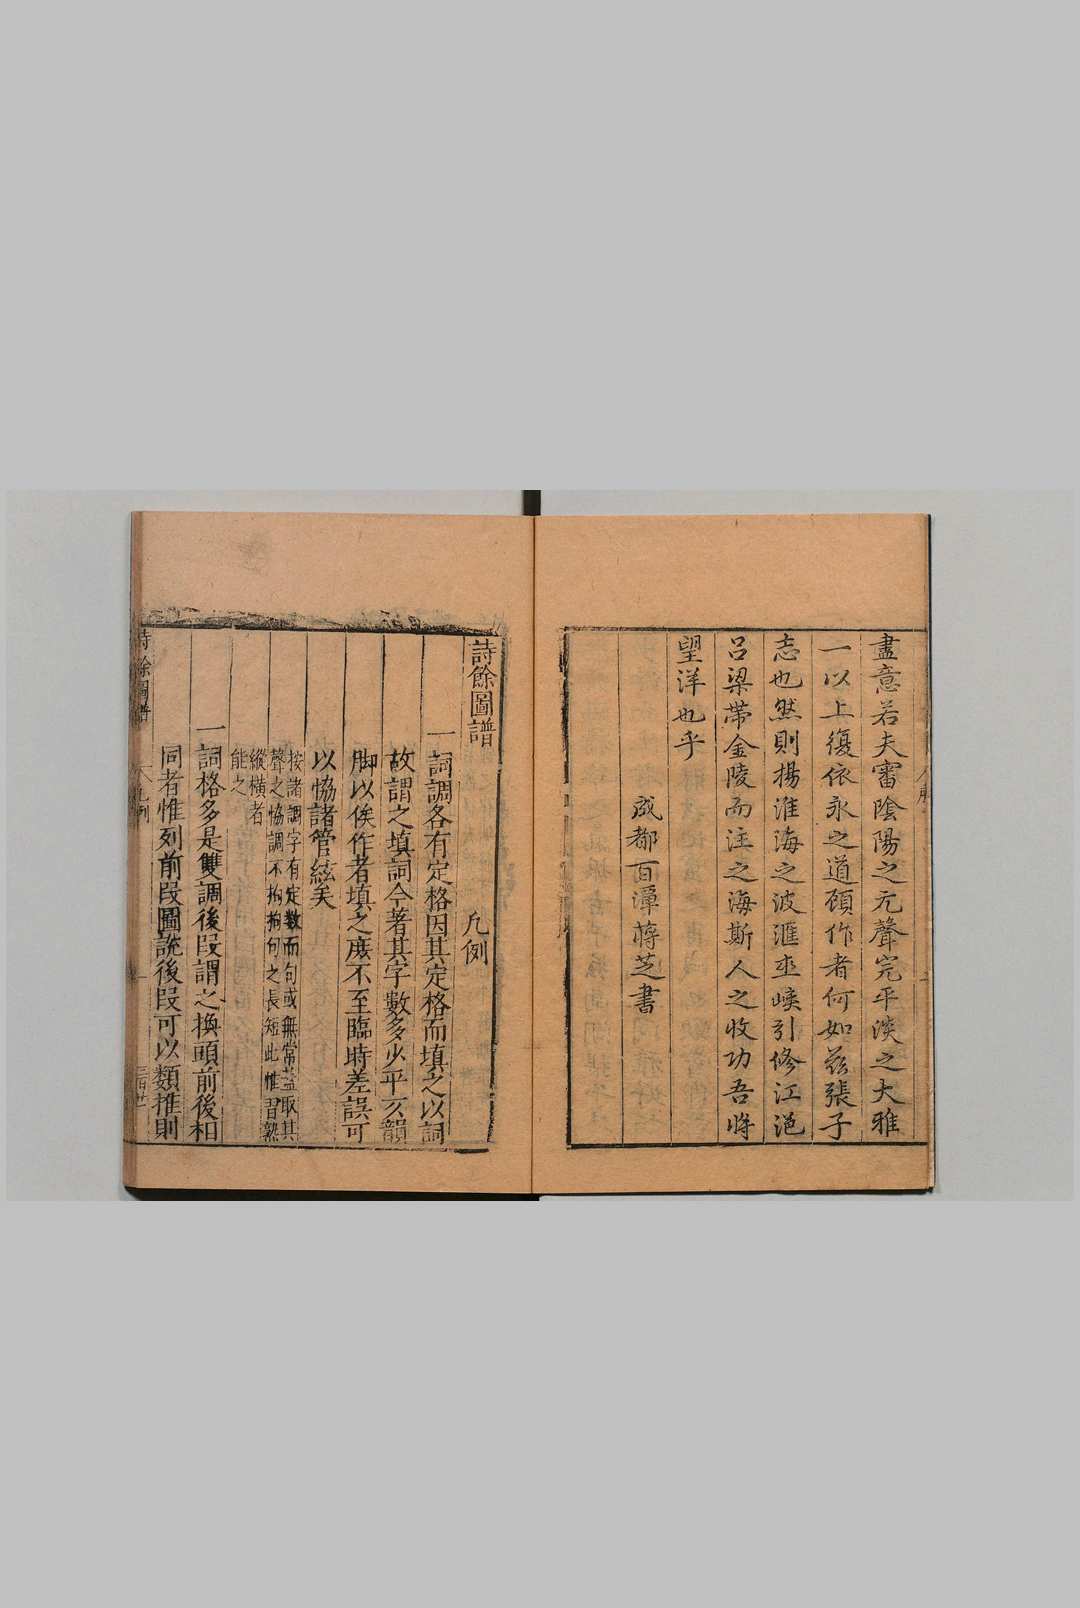 盡意若夫審陰陽之元聲完平淡之大雅
一以上復依永之道頋作者何如茲張子
志也然則揚淮海之波滙
引修江浥
呂梁帶金陵而注之海斯人之收功吾將
望洋也乎
成都百潭蔣芝書
詩餘圖譜
凡例
一詞調各有定格因其定格而填之以詞
故謂之填詞今著其字數多少平仄韻
脚以俟作者填之庻不至臨時差誤可
以恊諸管絃矣
按諸調字有定數而句或無常葢取其
聲之恊調不拘拘句之長短此惟習熟
縱橫者
能之
一詞格多是雙調後段謂之換頭前後相
同者惟列前段圖說後段可以類推則
詩餘圖譜
凡例
一